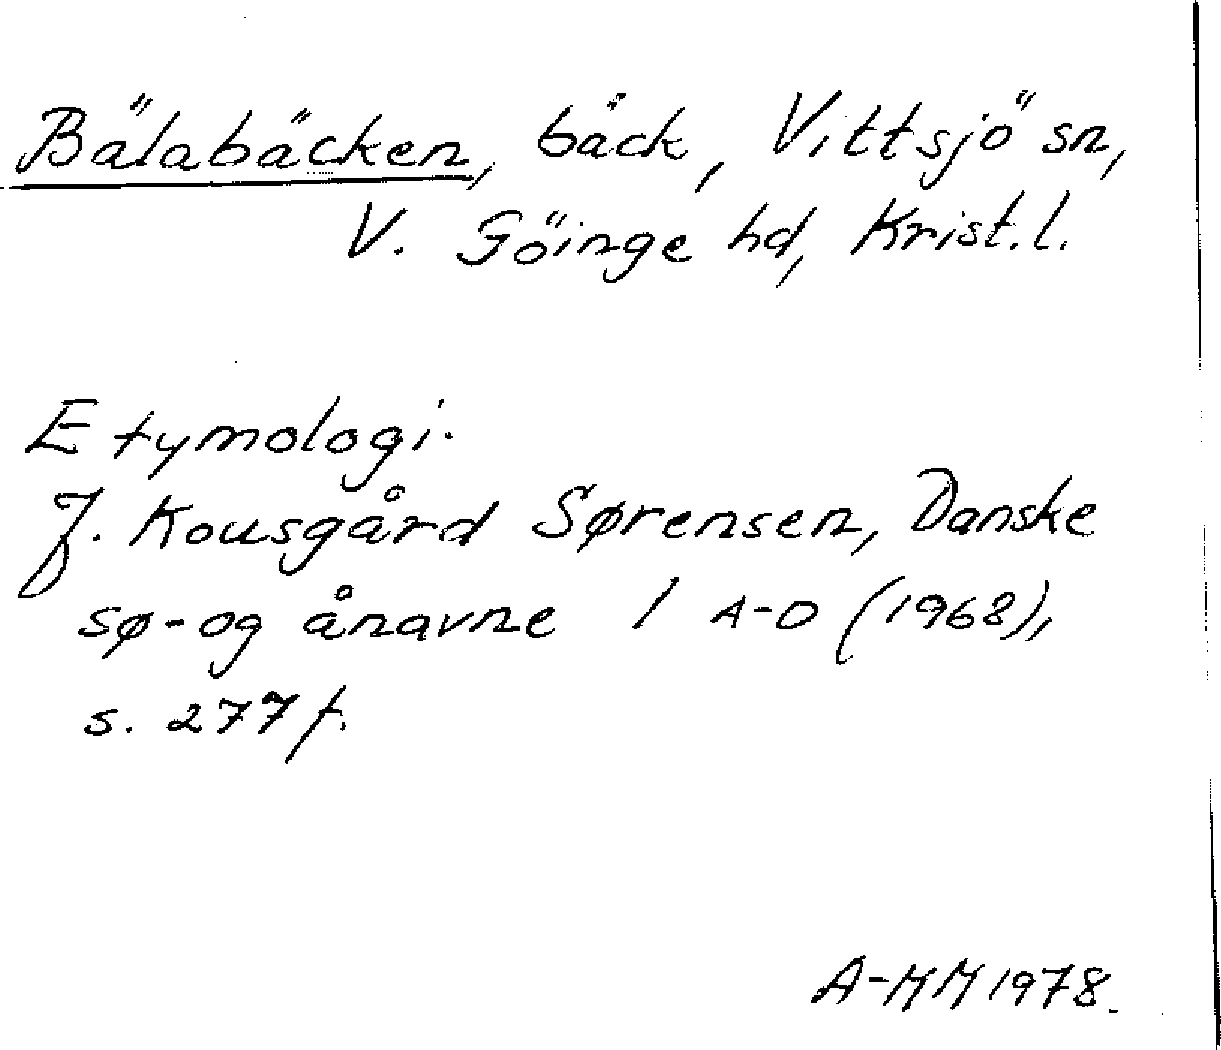 Bälabäcken, bäck, Vittsjö sn,
V. Göinge hd, Krist. l.
Etymologi.
J. Kousgård Sørensen, Danske
sø- og ånavne 1 A-D (1968),
s. 277 f.
A-MM 1978.